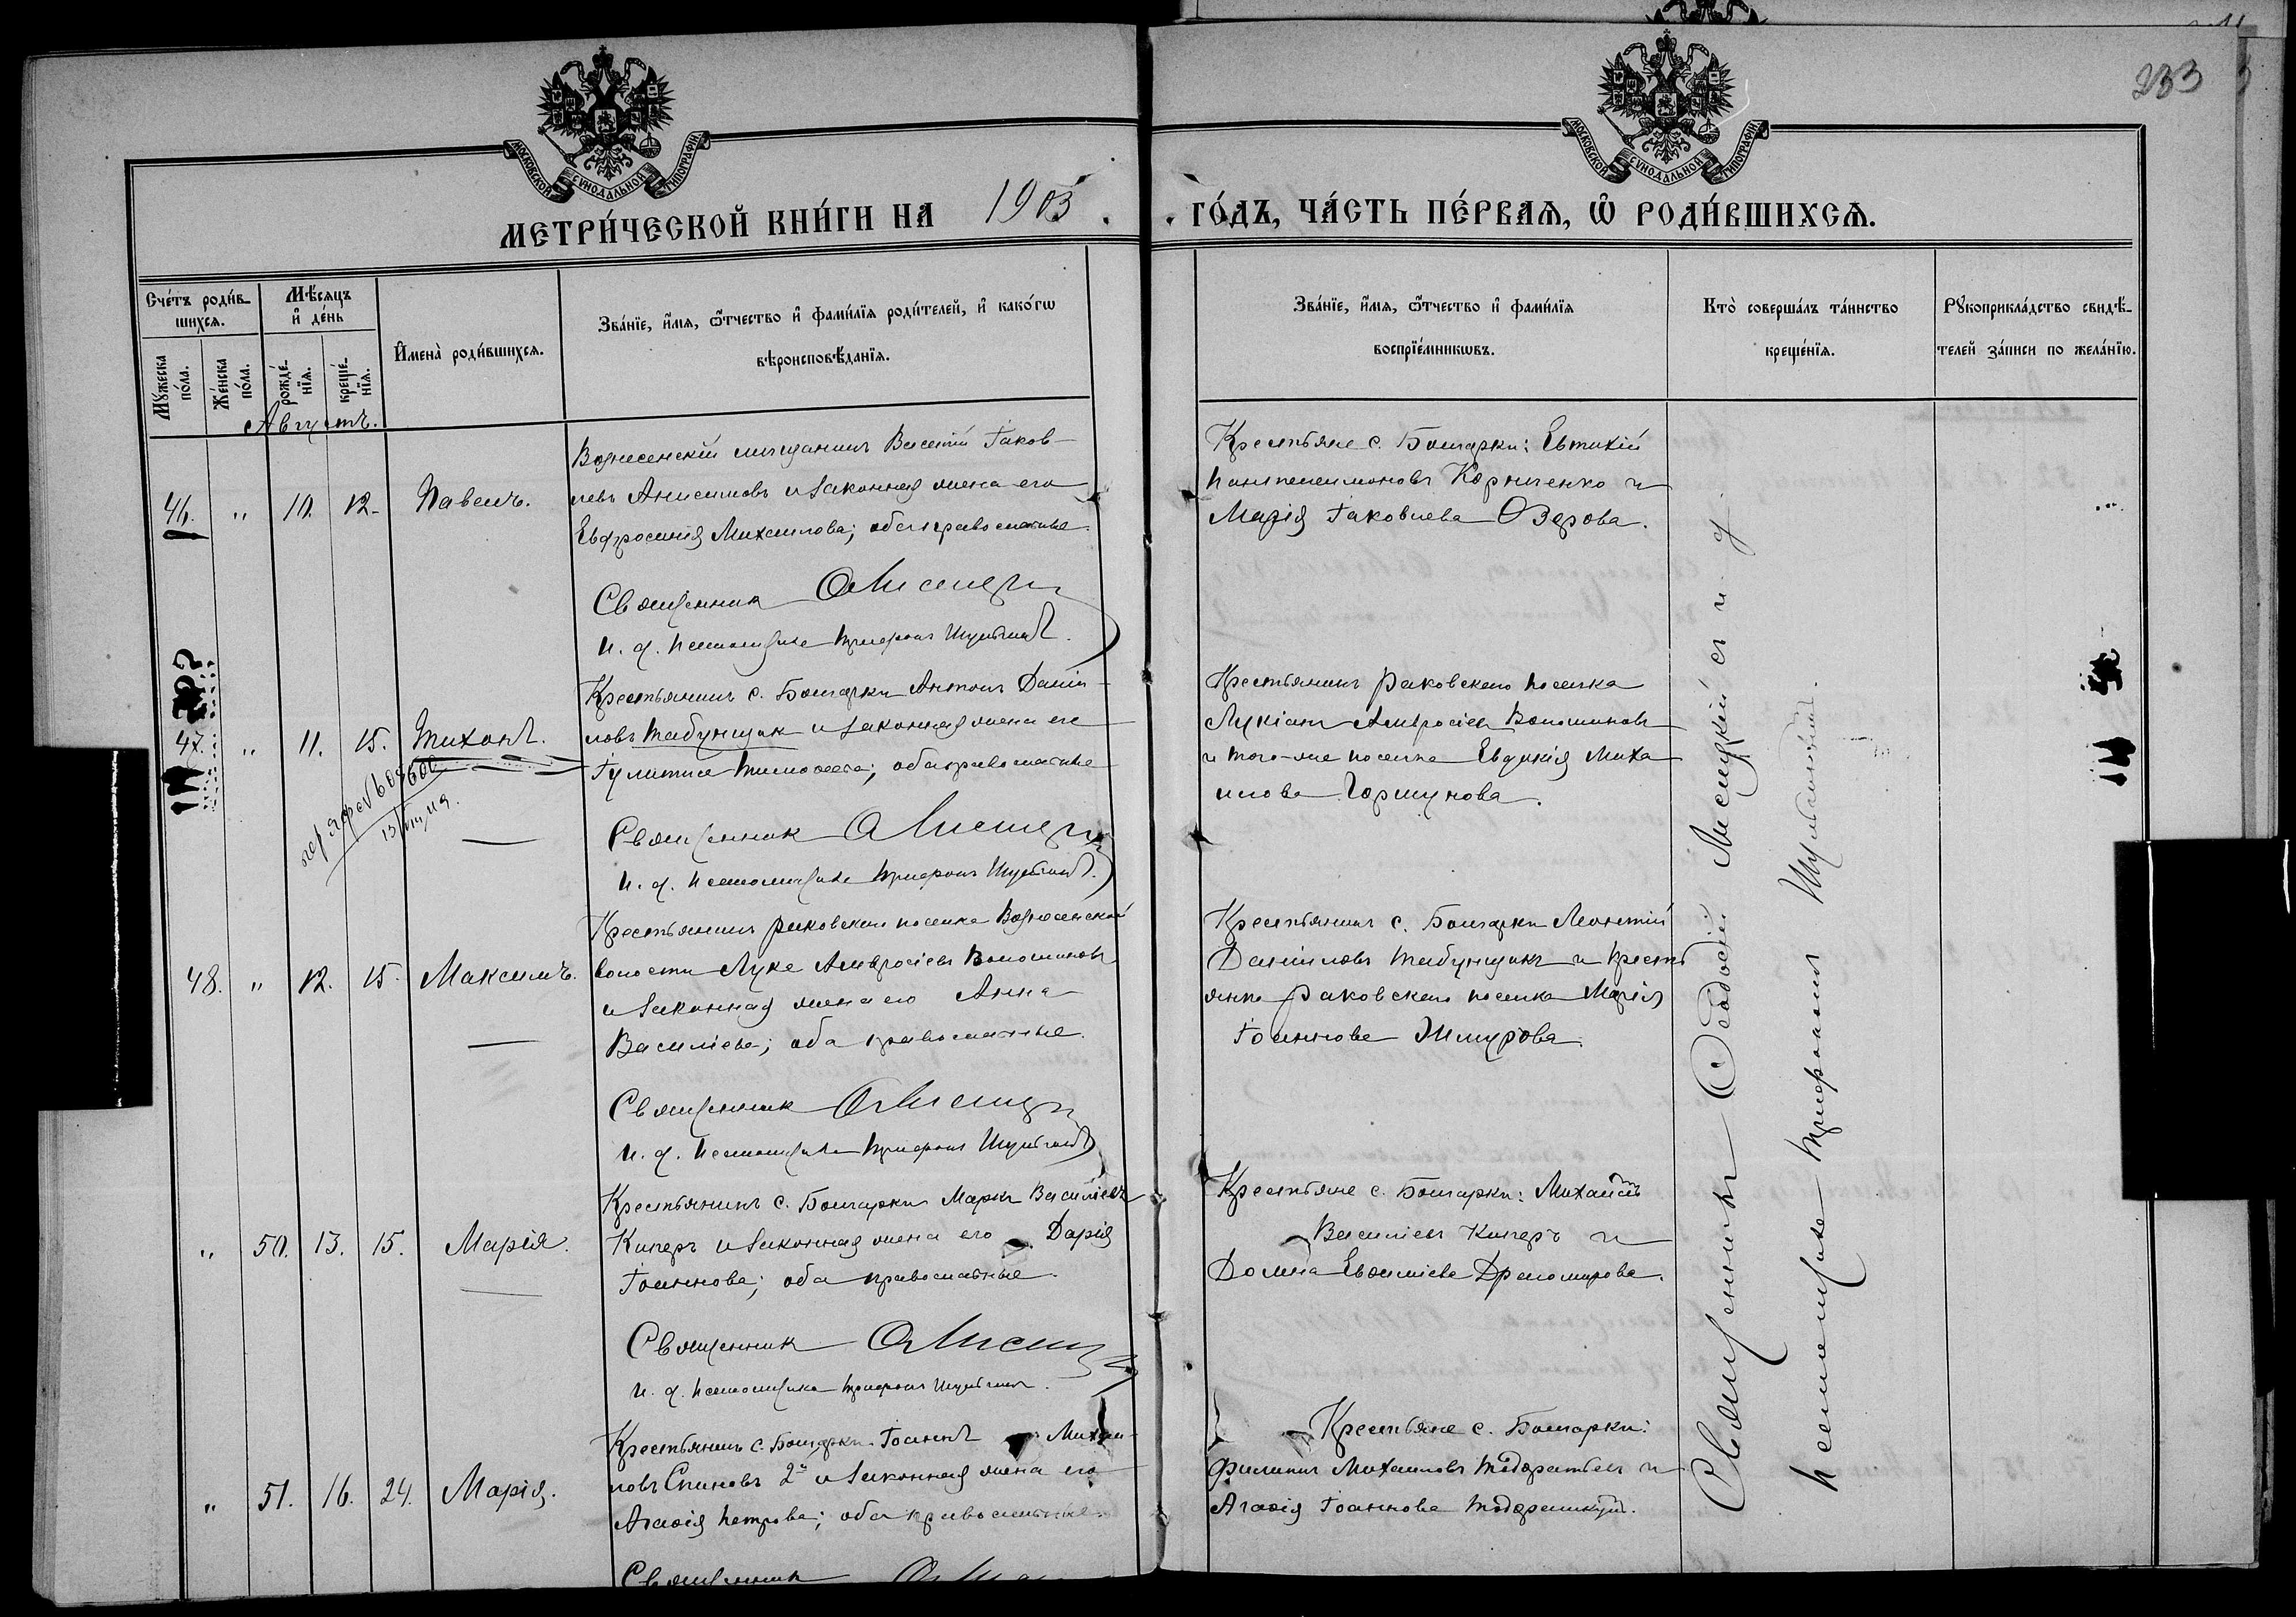 233
МОСКОВСКОЙ СѴНОДАЛЬНОЙ ТИПОГРАФІИ
МОСКОВСКОЙ СѴНОДАЛЬНОЙ ТИПОГРАФІИ
МЕТРИ́ЧЕСКОЙ КНИ́ГИ НА 1903.
ГО́ДЪ, ЧА́СТЬ ПЕ́РВАЯ, Ѽ РОДИ́ВШИХСЯ.
Сче́тъ роди́в-
шихся.
Мѣ́сяцъ
и де́нь
Мꙋ́жеска
по́ла.
Же́нска
по́ла.
рожде́-
нїя.
креще́-
нїя.
Имена̀ роди́вшихся.
Зва́нїе, и́мя, ѻ҆́тчество и фами́лїя роди́телей, и како́гѡ
вѣроисповѣ́данїя.
Зва́нїе, и́мя, ѻ҆́тчество и фами́лїя
воспрїе́мникѡвъ.
Кто̀ соверша́лъ та́инство
креще́нїя.
Рꙋкоприкла́дство свидѣ́-
телей за́писи по жела́нїю.
Августъ.
46. " 10. 12. Павелъ.
Вознесенскій мѣщанинъ Василій Іаков-
левъ Анисимовъ и законная жена его
Евфросинія Михаилова; оба православные.
Священникъ
и. д. псаломщика Трифонъ
Крестьяне с. Болгарки: Евтихій
Пантелеимоновъ Корниенко и
Марія Іаковлева Озерова.
47. " 11. 15. Тихонъ.
Крестьянинъ с. Болгарки Антонъ Даніи-
ловъ Табунщик и законная жена его
Іулитта Тимоѳеева; оба православные
Священникъ
и. д. псаломщика Трифонъ
Крестьянинъ Раковскаго поселка
Лукіанъ Амвросіевъ Волошиновъ
и того-же поселка Евдокія Миха
илова Горшунова.
48. " 12. 15. Максимъ.
Крестьянинъ Раковскаго поселка Вознесенской
волости Лука Амвросіевъ Волошиновъ
и законная жена его Анна
Василіева; оба православные.
Священникъ
и. д. псаломщика Трифонъ
Крестьянинъ с. Болгарки Леонтій
Даніиловъ Табунщикъ и крестъ
янка Раковскаго поселка Марія
Іоаннова
" 50. 13. 15. Марія.
Крестьянинъ с. Болгарки Маркъ Василіевъ
Киперъ и законная жена его Дарія
Іоаннова; оба православные.
Священникъ
и. д. псаломщика Трифонъ
Крестьяне с. Болгарки: Михаилъ
Василіевъ Киперъ и
Домна Евѳиміева Драгомирова.
" 51. 16. 24. Марія.
Крестьянинъ с. Болгарки Іоаннъ Михаи-
ловъ Спиновъ 2й и законная жена его
Агаѳія Петрова; оба православные.
Священникъ
Крестьяне с. Болгарки:
Филиппъ Михаиловъ и
Агаѳія Іоаннова
Священникъ Ѳеодосій Лисицкій съ и. д.
псаломщика Трифономъ